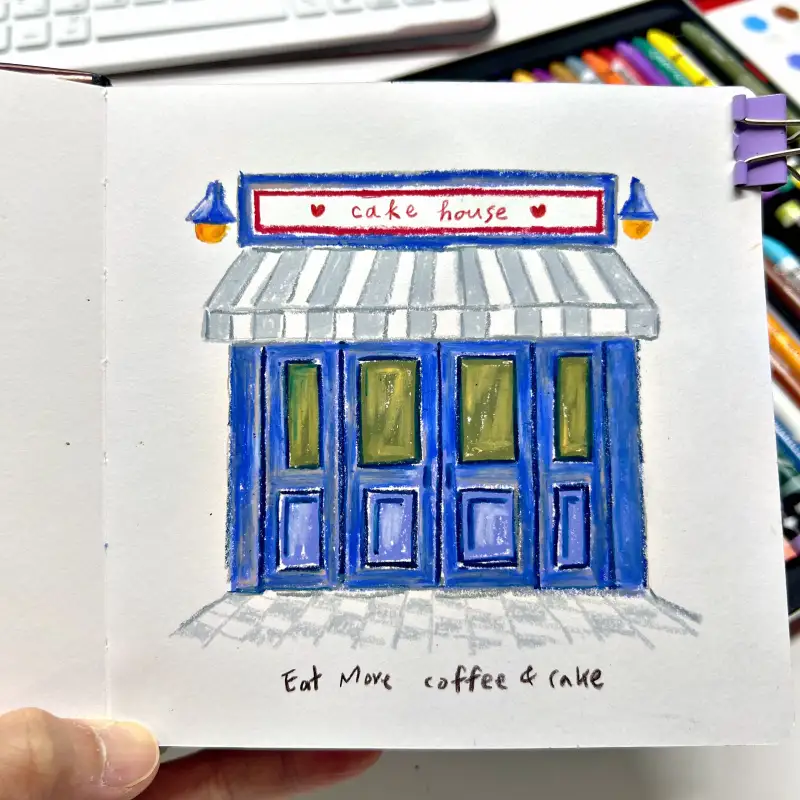 ♥ cake house ♥
Eat More coffee & cake